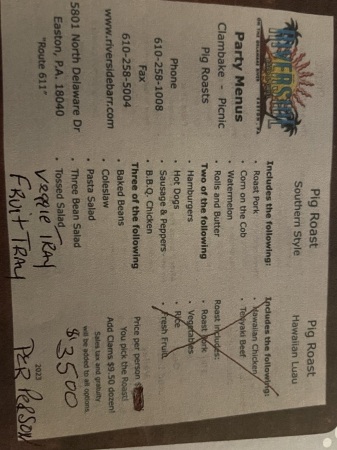 RIVERSIDE
Party Menus
Clambake - Picnic
Pig Roasts
Phone
610-258-1008
Fax
610-258-5004
www.riversidebarr.com
5801 North Delaware Dr
Easton, P.A. 18040
"Route 611"
Pig Roast
Southern Style
Includes the following:
• Roast Pork
• Corn on the Cob
• Watermelon
• Rolls and Butter
Two of the following
• Hamburgers
• Hot Dogs
• Sausage & Peppers
• B.B.Q. Chicken
Three of the following
• Baked Beans
• Coleslaw
• Pasta Salad
• Three Bean Salad
• Tossed Salad
Veggie Tray
Fruit Tray
Pig Roast
Hawaiian Luau
Includes the following:
• Hawaiian Chicken
• Teriyaki Beef
Roast Includes:
• Roast Pork
• Vegetables
• Rice
• Fresh Fruit
Price per person
You pick the Roast!
Add Clams $9.50 dozen!
Sales tax and gratuity
will be added to all options.
2023
$35.00
PER PERSON